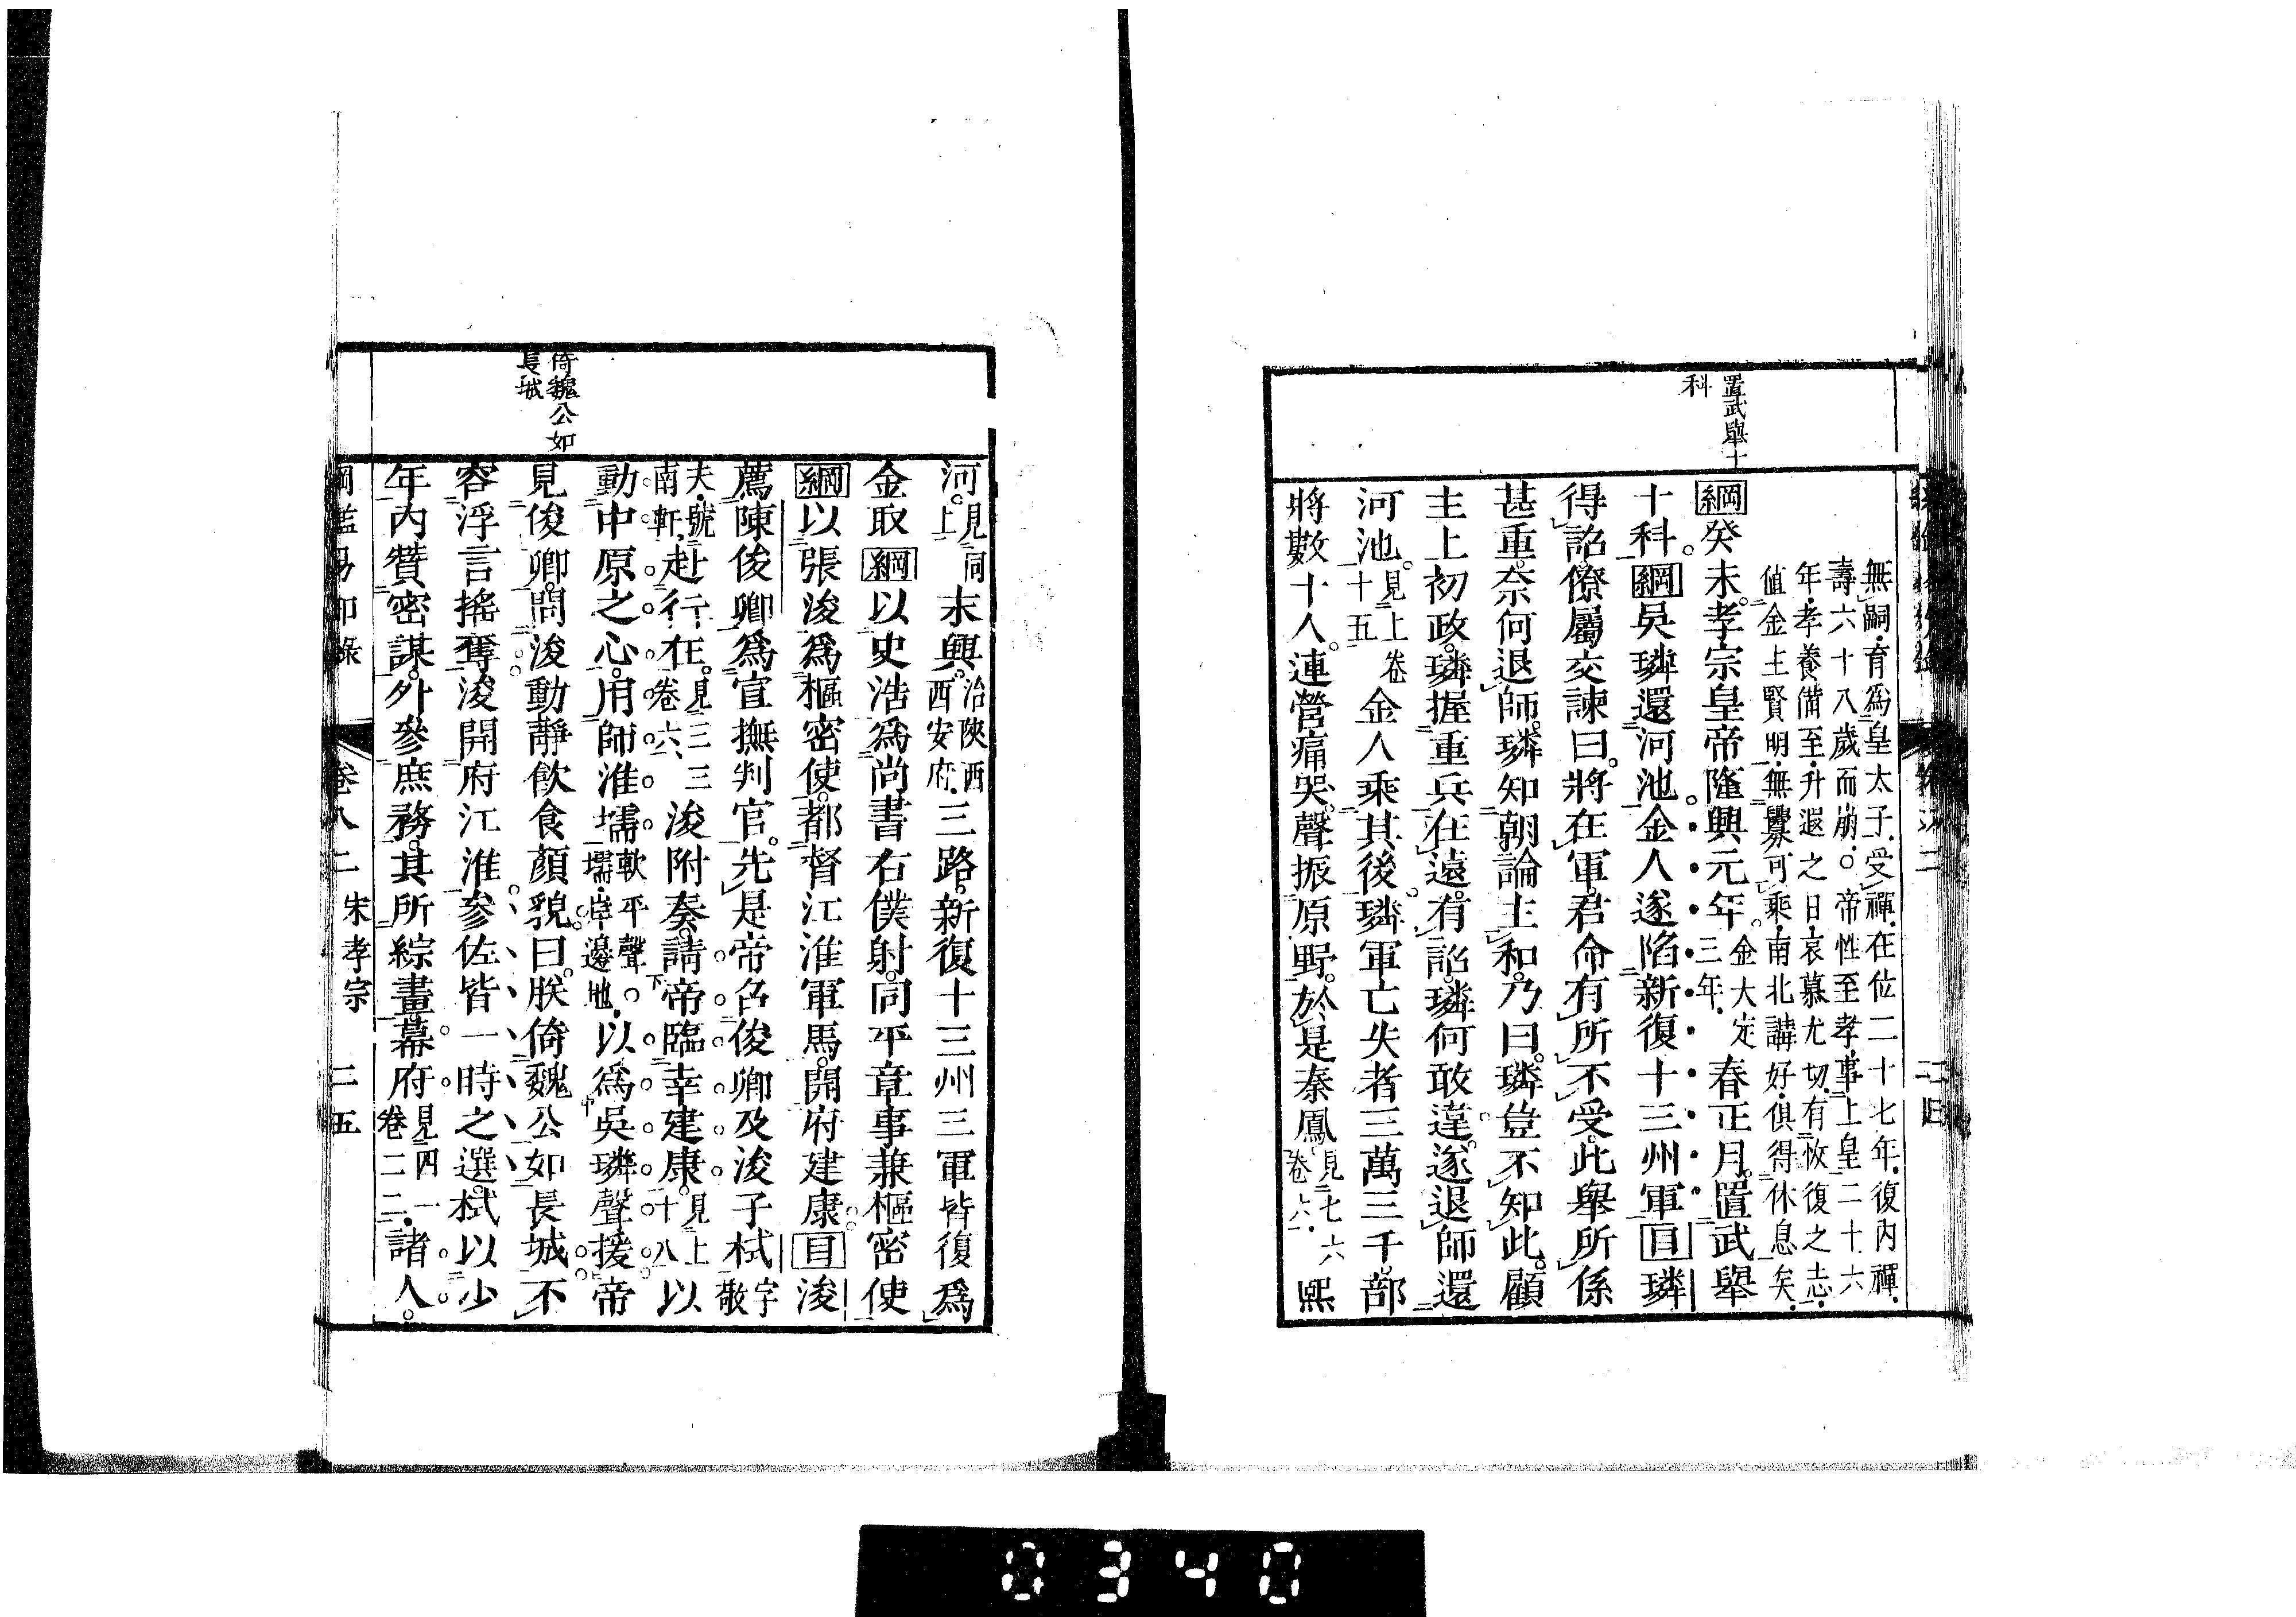 置武舉十
科
無嗣育爲皇太子受禪在位二十七年復內禪
壽六十八歲而崩○帝性至孝事上皇二十六
年孝養備至升遐之日哀慕尤切有恢復之志
値金主賢明無釁可乘南北講好俱得休息矣
綱癸未孝宗皇帝隆興元年金大定三年春正月置武舉
十科綱吳璘還河池金人遂陷新復十三州軍目璘
得詔僚屬交諫曰將在軍君命有所不受此舉所係
甚重奈何退師璘知朝論主和乃曰璘豈不知此顧
主上初政璘握重兵在遠有詔璘何敢違遂退師還
河池見上卷十五金人乘其後璘軍亡失者三萬三千部
將數十人連營痛哭聲振原野於是秦鳳見七六卷六熙
倚魏公如
長城
河見同上永興治陝西西安府三路新復十三州三軍皆復爲
金取綱以史浩爲尚書右僕射同平章事兼樞密使
綱以張浚爲樞密使都督江淮軍馬開府建康目浚
薦陳俊卿爲宣撫判官先是帝召俊卿及浚子栻字敬
夫號南軒赴行在見三三卷六浚附奏請帝臨幸建康見上十八以
動中原之心用師淮壖軟平聲○壖岸邊地以爲吳璘聲援帝
見俊卿問浚動靜飮食顏貌曰朕倚魏公如長城不
容浮言搖奪浚開府江淮參佐皆一時之選栻以少
年內贊密謀外參庶務其所綜畫幕府見四一卷二二諸人
綱鑑易知錄 卷八二 宋孝宗 二五
0340